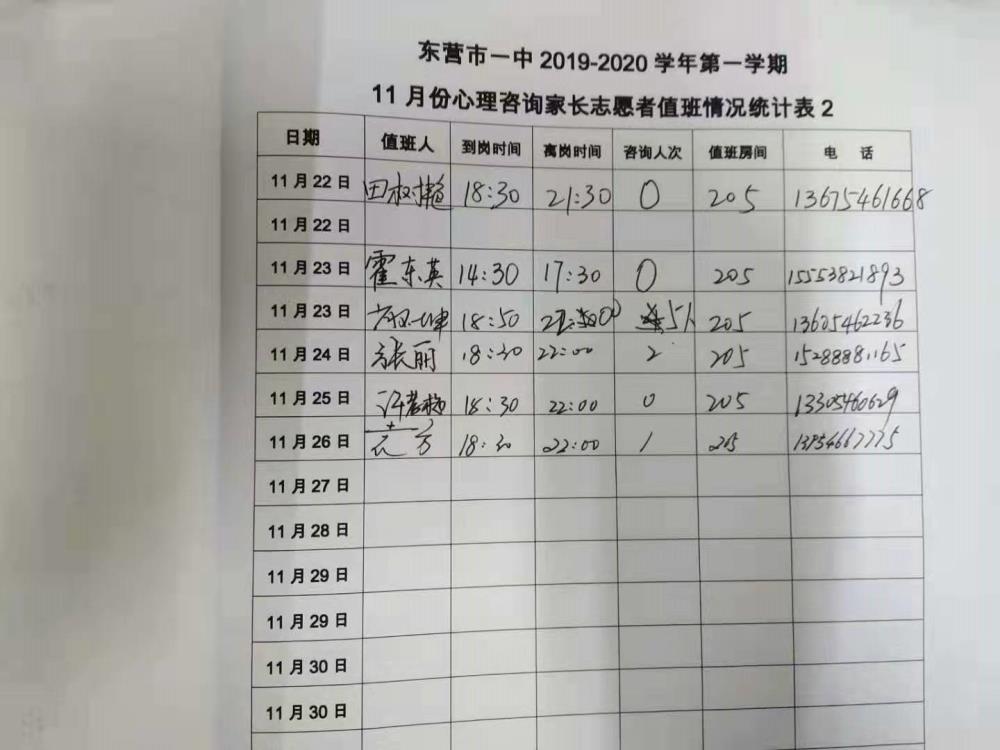 东营市一中 2019-2020 学年第一学期
11 月份心理咨询家长志愿者值班情况统计表 2
日期 值班人 到岗时间 离岗时间 咨询人次 值班房间 电 话
11 月 22 日 田 18:30 21:30 0 205 13675461668
11 月 22 日
11 月 23 日 霍东英 14:30 17:30 0 205 15553821893
11 月 23 日 18:50 5人 205 13605462236
11 月 24 日 张丽 18:30 22:00 2 205 15288881165
11 月 25 日 许 18:30 22:00 0 205 13305460629
11 月 26 日 18:30 22:00 1 205
11 月 27 日
11 月 28 日
11 月 29 日
11 月 29 日
11 月 30 日
11 月 30 日